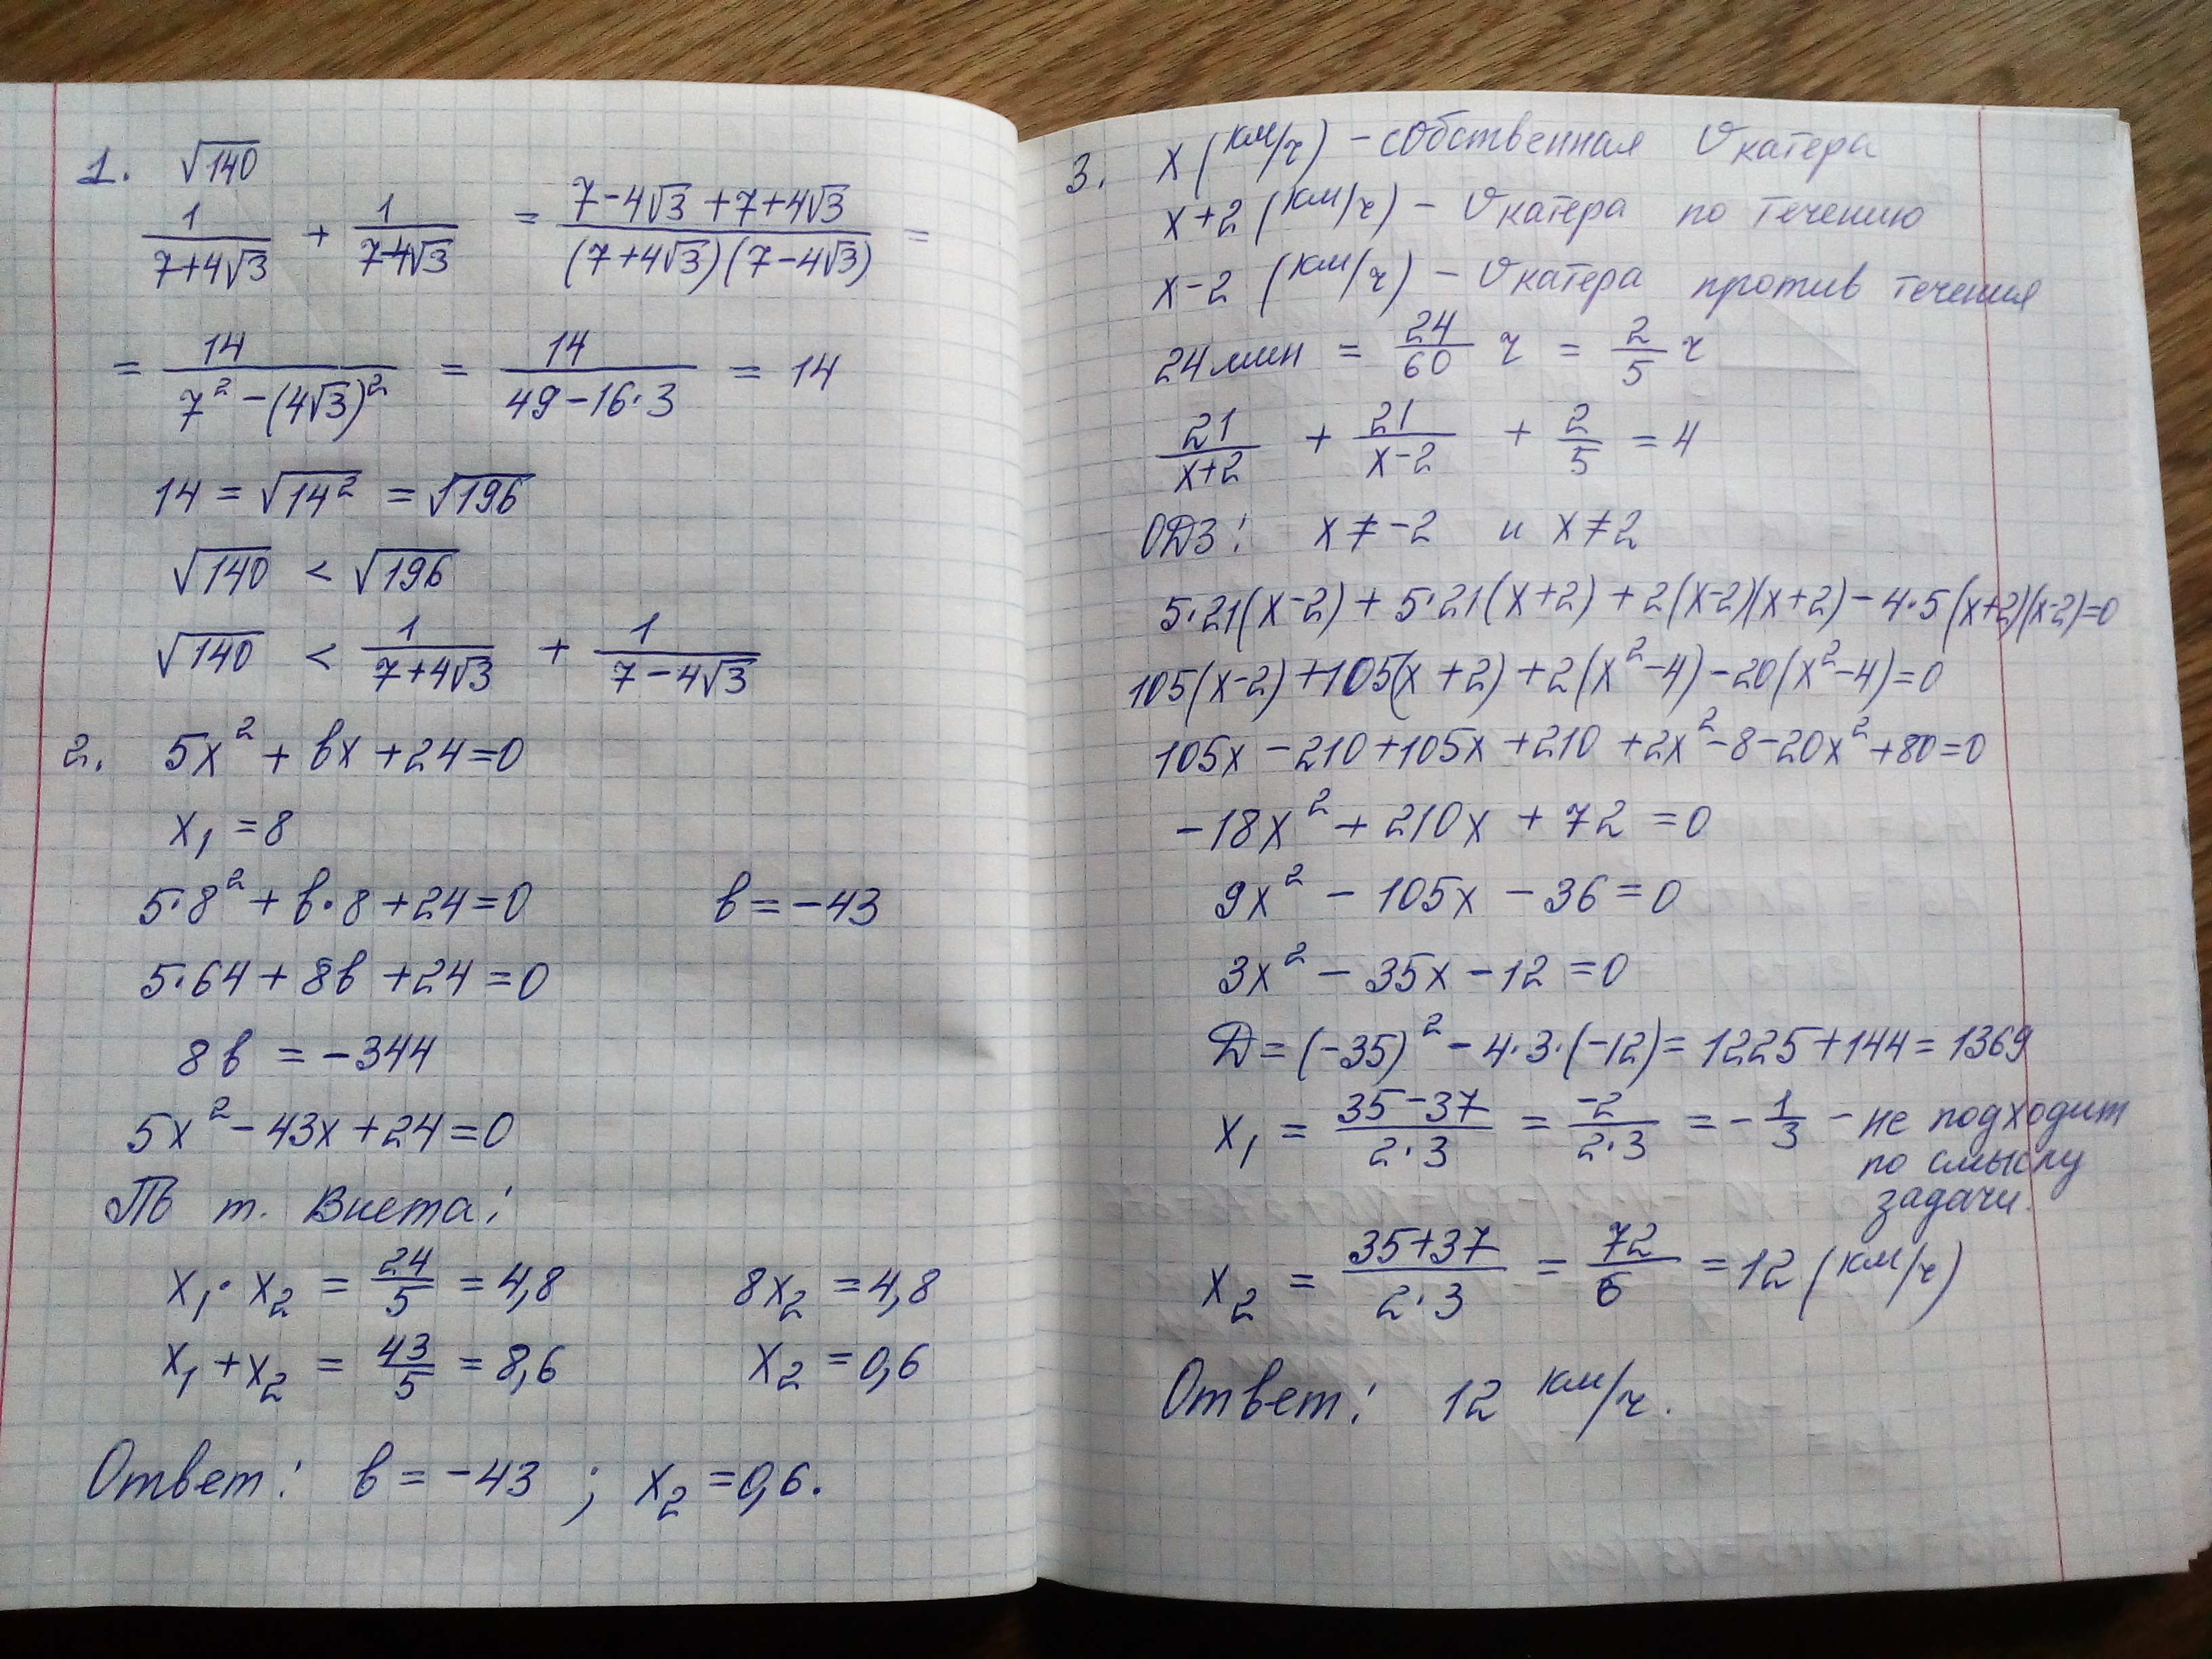 1. √140
1/(7+4√3) + 1/(7-4√3) = (7-4√3+7+4√3)/((7+4√3)(7-4√3)) =
= 14/(7²-(4√3)²) = 14/(49-16·3) = 14
14 = √14² = √196
√140 < √196
√140 < 1/(7+4√3) + 1/(7-4√3)
2. 5x² + bx + 24 = 0
x₁ = 8
5·8² + b·8 + 24 = 0 b = -43
5·64 + 8b + 24 = 0
8b = -344
5x² - 43x + 24 = 0
По т. Виета:
x₁·x₂ = 24/5 = 4,8 8x₂ = 4,8
x₁+x₂ = 43/5 = 8,6 x₂ = 0,6
Ответ: b = -43 ; x₂ = 0,6.
3. x (км/ч) – собственная v катера
x+2 (км/ч) – v катера по течению
x-2 (км/ч) – v катера против течения
24 мин = 24/60 ч = 2/5 ч
21/(x+2) + 21/(x-2) + 2/5 = 4
ОДЗ: x ≠ -2 и x ≠ 2
5·21(x-2) + 5·21(x+2) + 2(x-2)(x+2) - 4·5(x+2)(x-2) = 0
105(x-2) + 105(x+2) + 2(x²-4) - 20(x²-4) = 0
105x - 210 + 105x + 210 + 2x² - 8 - 20x² + 80 = 0
-18x² + 210x + 72 = 0
9x² - 105x - 36 = 0
3x² - 35x - 12 = 0
D = (-35)² - 4·3·(-12) = 1225 + 144 = 1369
x₁ = (35-37)/(2·3) = -2/(2·3) = -1/3 – не подходит
по смыслу
задачи.
x₂ = (35+37)/(2·3) = 72/6 = 12 (км/ч)
Ответ: 12 км/ч.